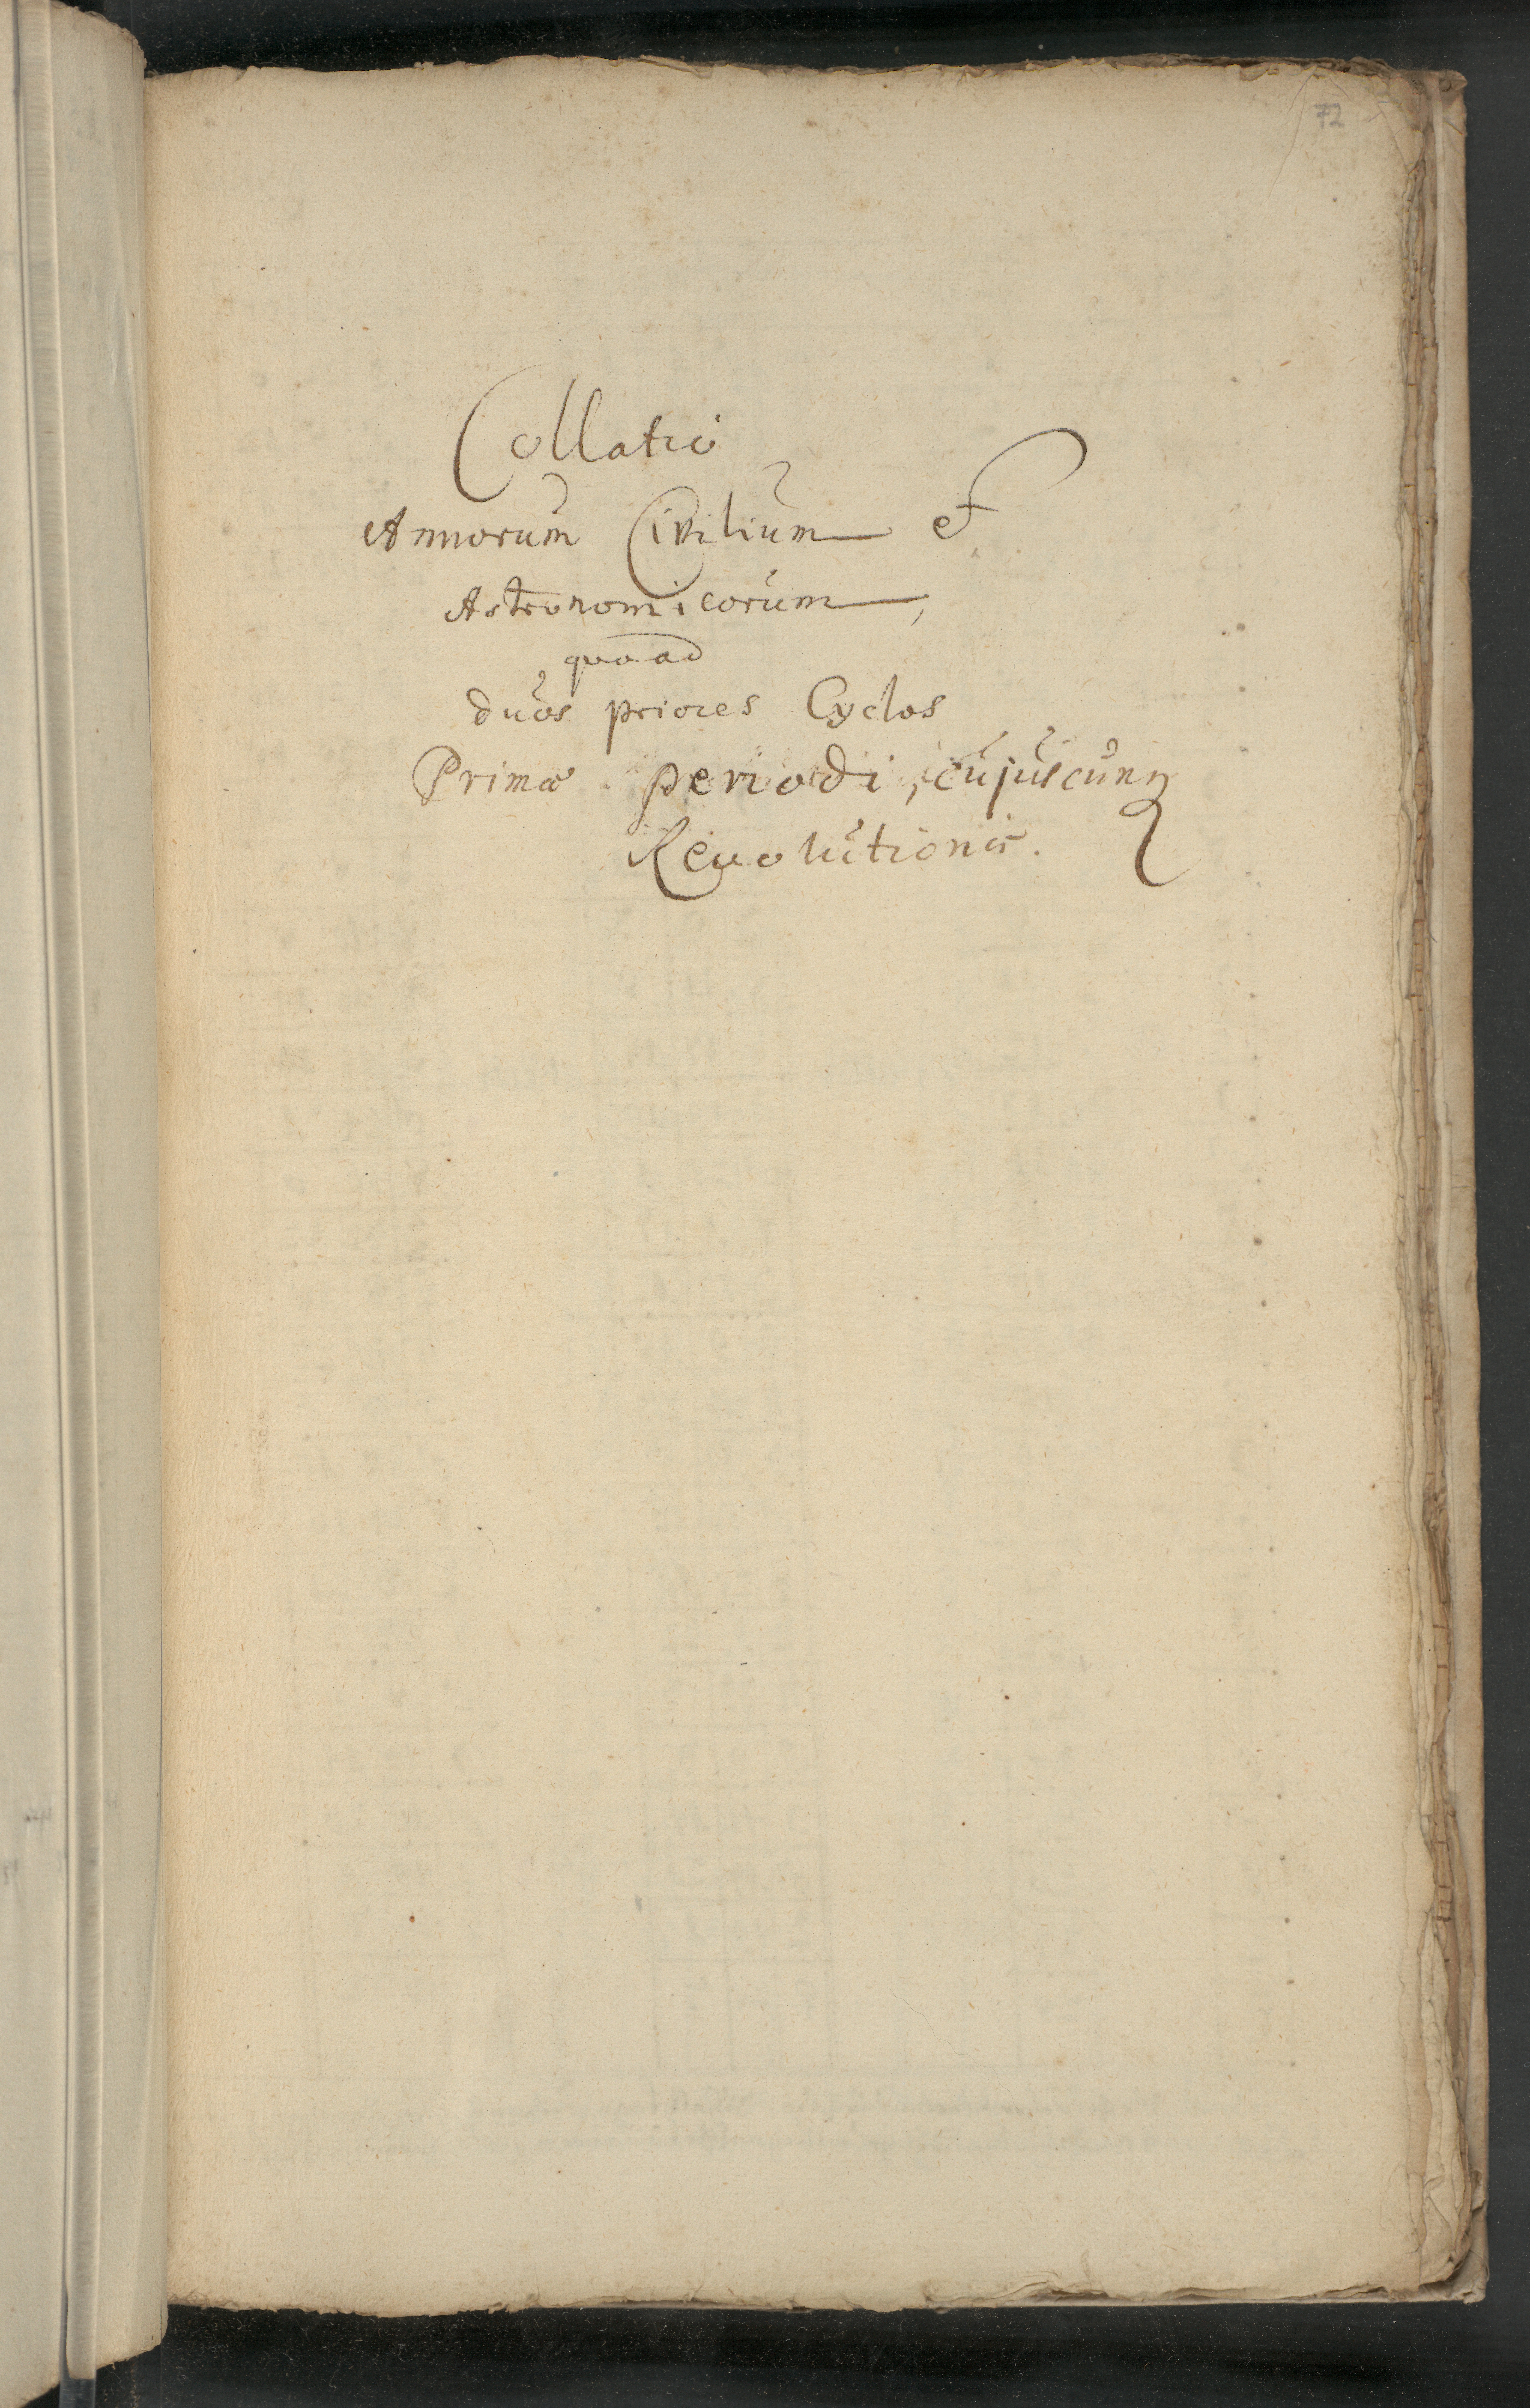 72
Collatio
Annorum Civilium et
Astronomicorum,
quoad
duos priores Cyclos
Primæ periodi, cujuscunq
Revolutionis.